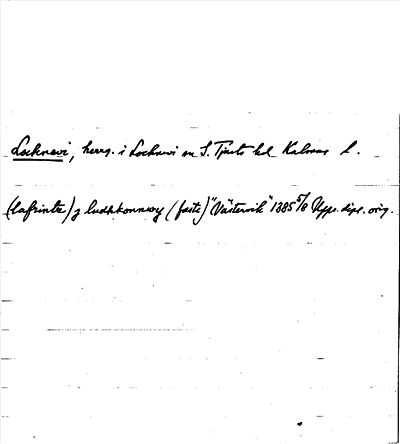 Locknevi, herrg. i Locknevi sn S. Tjusts hd Kalmar l.
(lafrintz) j ludhkonnwy (faste) "Västervik" 1385 5/8 Upps. dipl. orig.